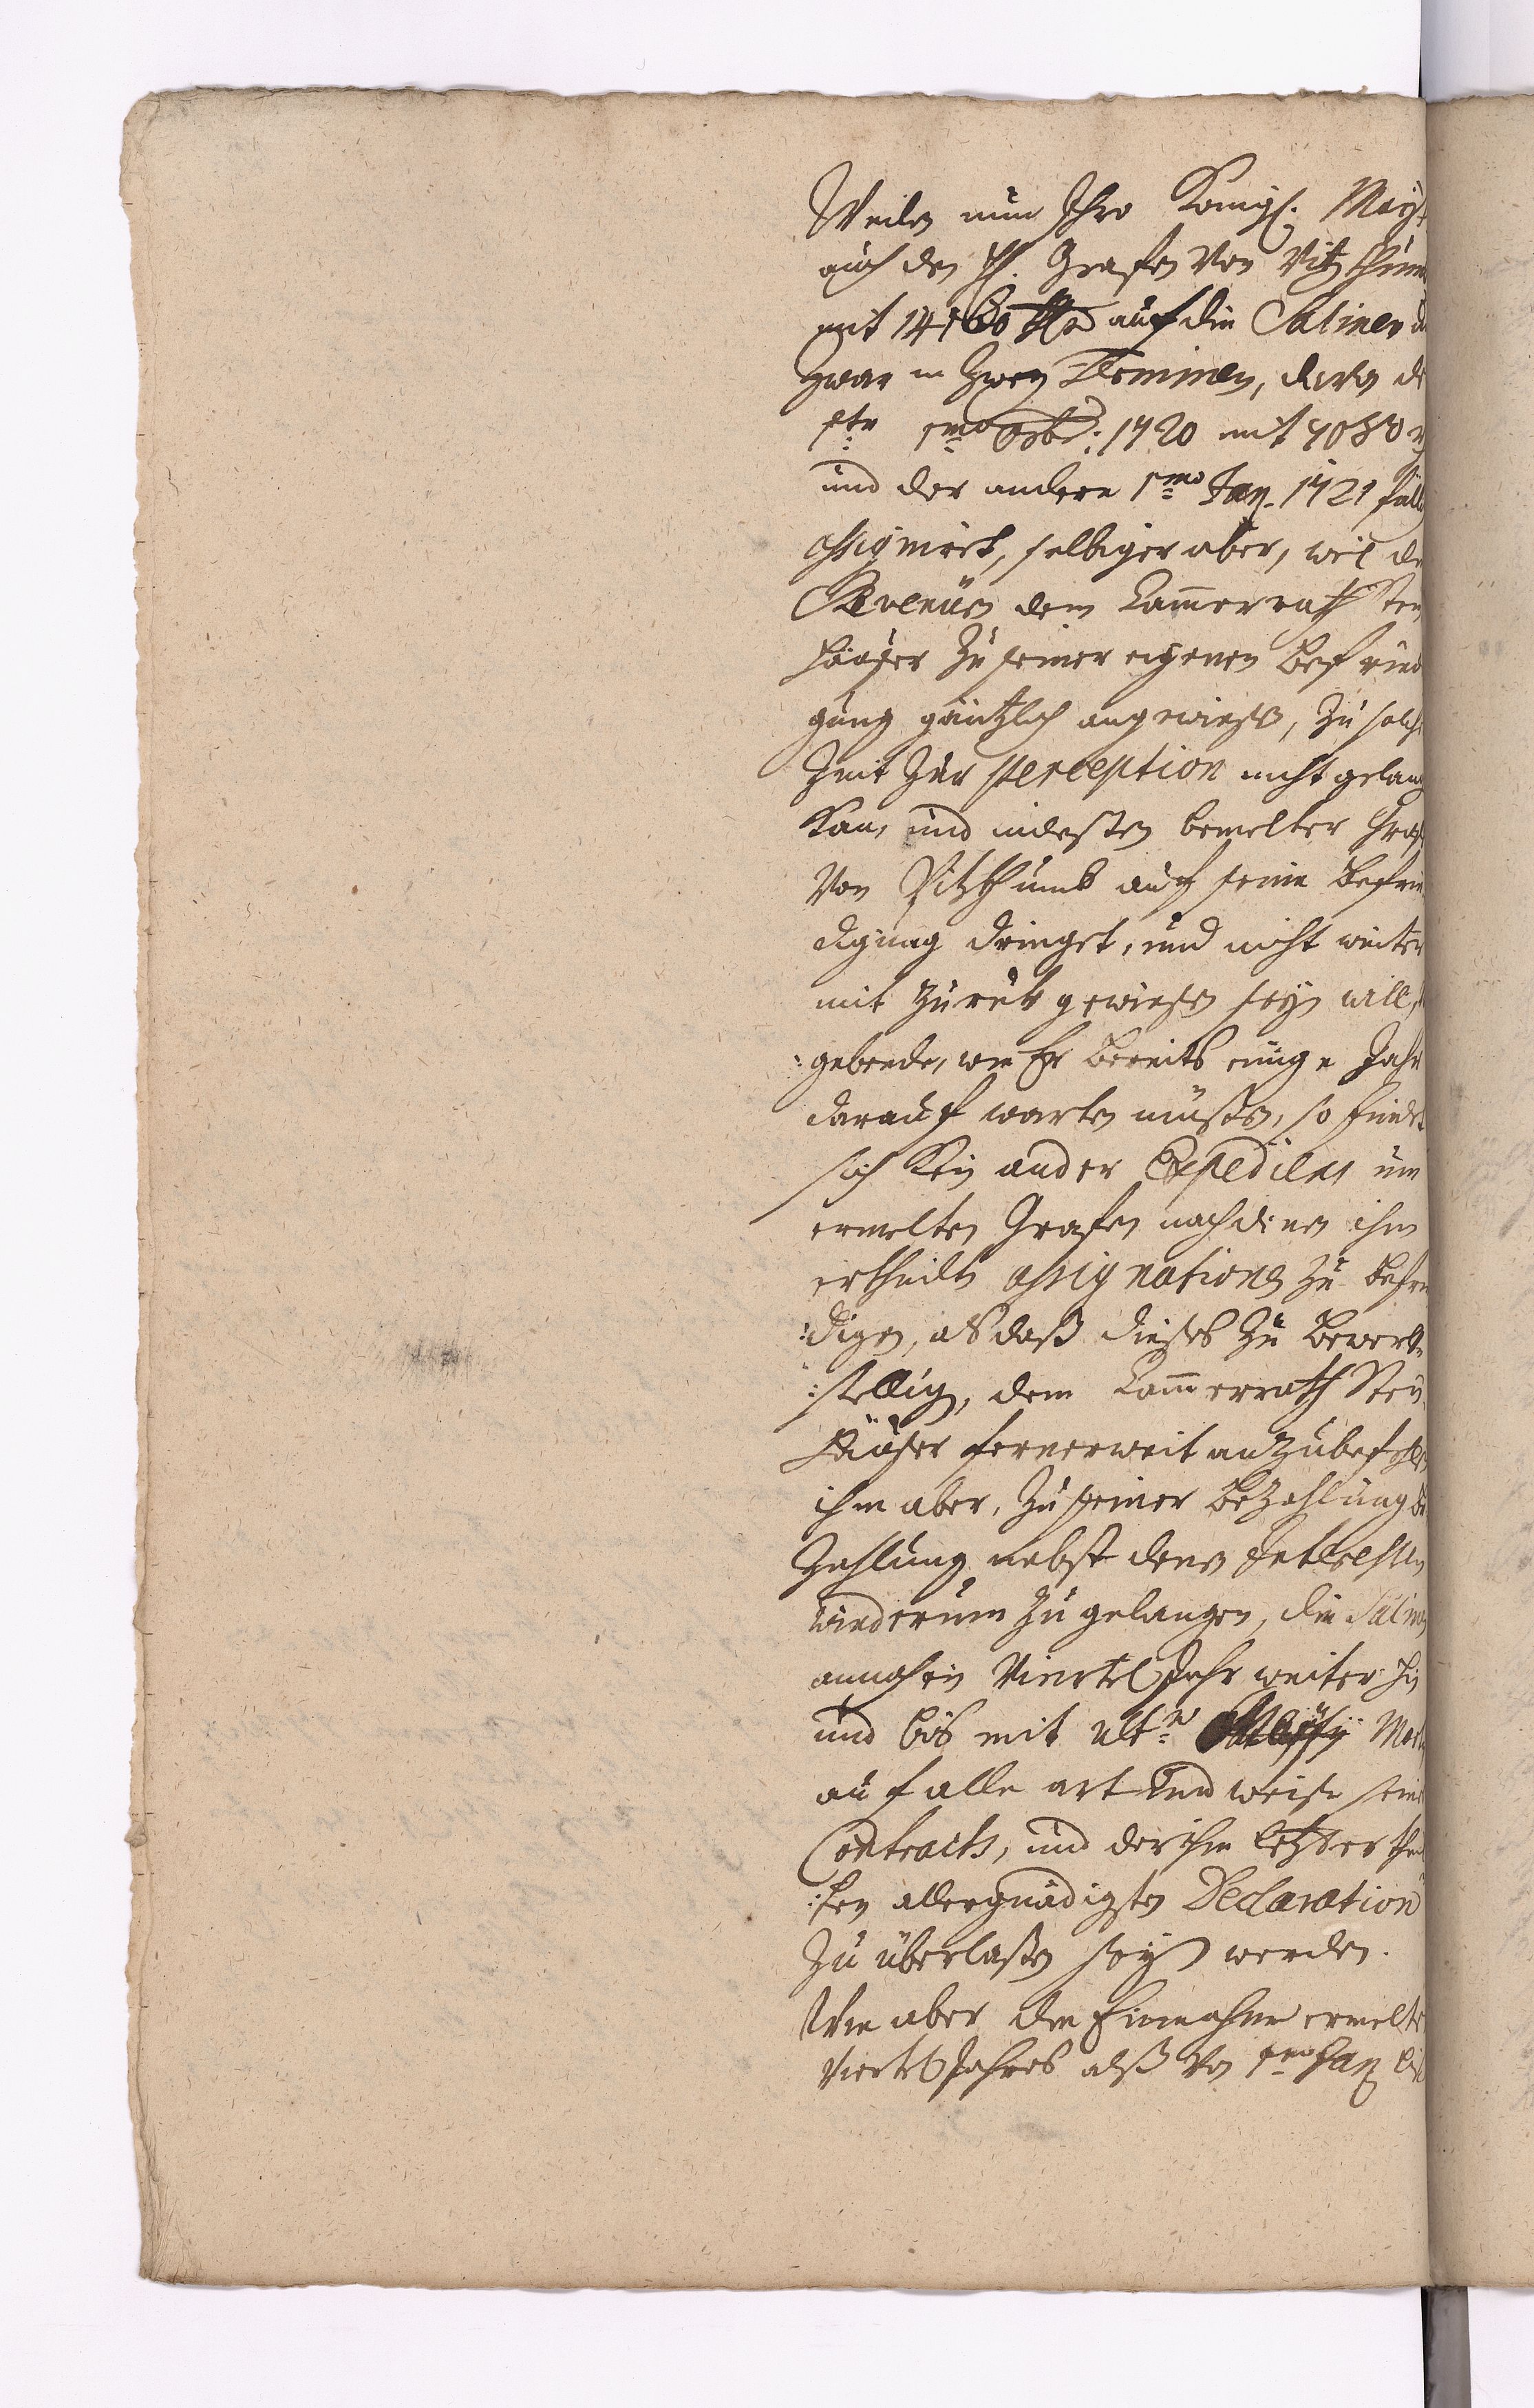 Weilen nun Ihro Königl. Mayt.
auch den H. Grafen von Vitzthumb
mit 14160 thlr auf die Salinen
zwar in zwey Terminen, davon de
1te 1mo Octbr: 1720 mit 7080
und der andere 1mo Jan. 1721 fällig
assigniret, selbiger aber, weil die
Revenüen dem Cammerrath Stein
häuser zu seiner eigenen Befried
gung gäntzlich angewiesen, zu solcher
Zeit zur perception nicht gelang
Kan, und indessen bemelter Graf
von Vitzthumb auf seine Befrie
digung dringet, und nicht weiter
mit zurück gewiesen seyn will,
:gebende, wie Er bereits einige Jahr
darauf warten müssen, so findet
sich kein ander Expediens um
ermelten Grafen nach denen ihm
ertheilten assignationen zu befrie
:digen, als daß dieses zu bewerck
:stelligen, dem Cammerrath Stein
häuser fernerweit anzubefehlen
ihm aber, zu seiner Bezahlung be
zahlung nebst denen Interessen
wiederum zu gelangen, die Salinen
annoch ein Viertel Jahr weiter hin
und bis mit ult. Mart
auf alle art und weise seines
Contracts, und der ihm letzt erthei
:ten allergnädigsten Declaration
zu überlassen seyn werden.
Wie aber die Einnahme ermelten
Viertel Jahres alß von 1mo Jan. bis